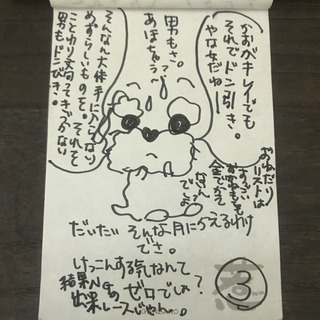 かおがキレイでも
それでドン引き。
やな女だね
男もさ。
あほちゃう?
そんな大体手に入らない
めずらしいものを。それを
ことわり文句ってきづかない
男もドンびき。
おねだり
リストは
すっごい
おかねもち
全てかて
なくん
でしょ
だいたい そんな月に与えるわけ
でさ。
けっこんする気なんて
ゼロでしょ?
結果NGの
出来レースじゃん。
③